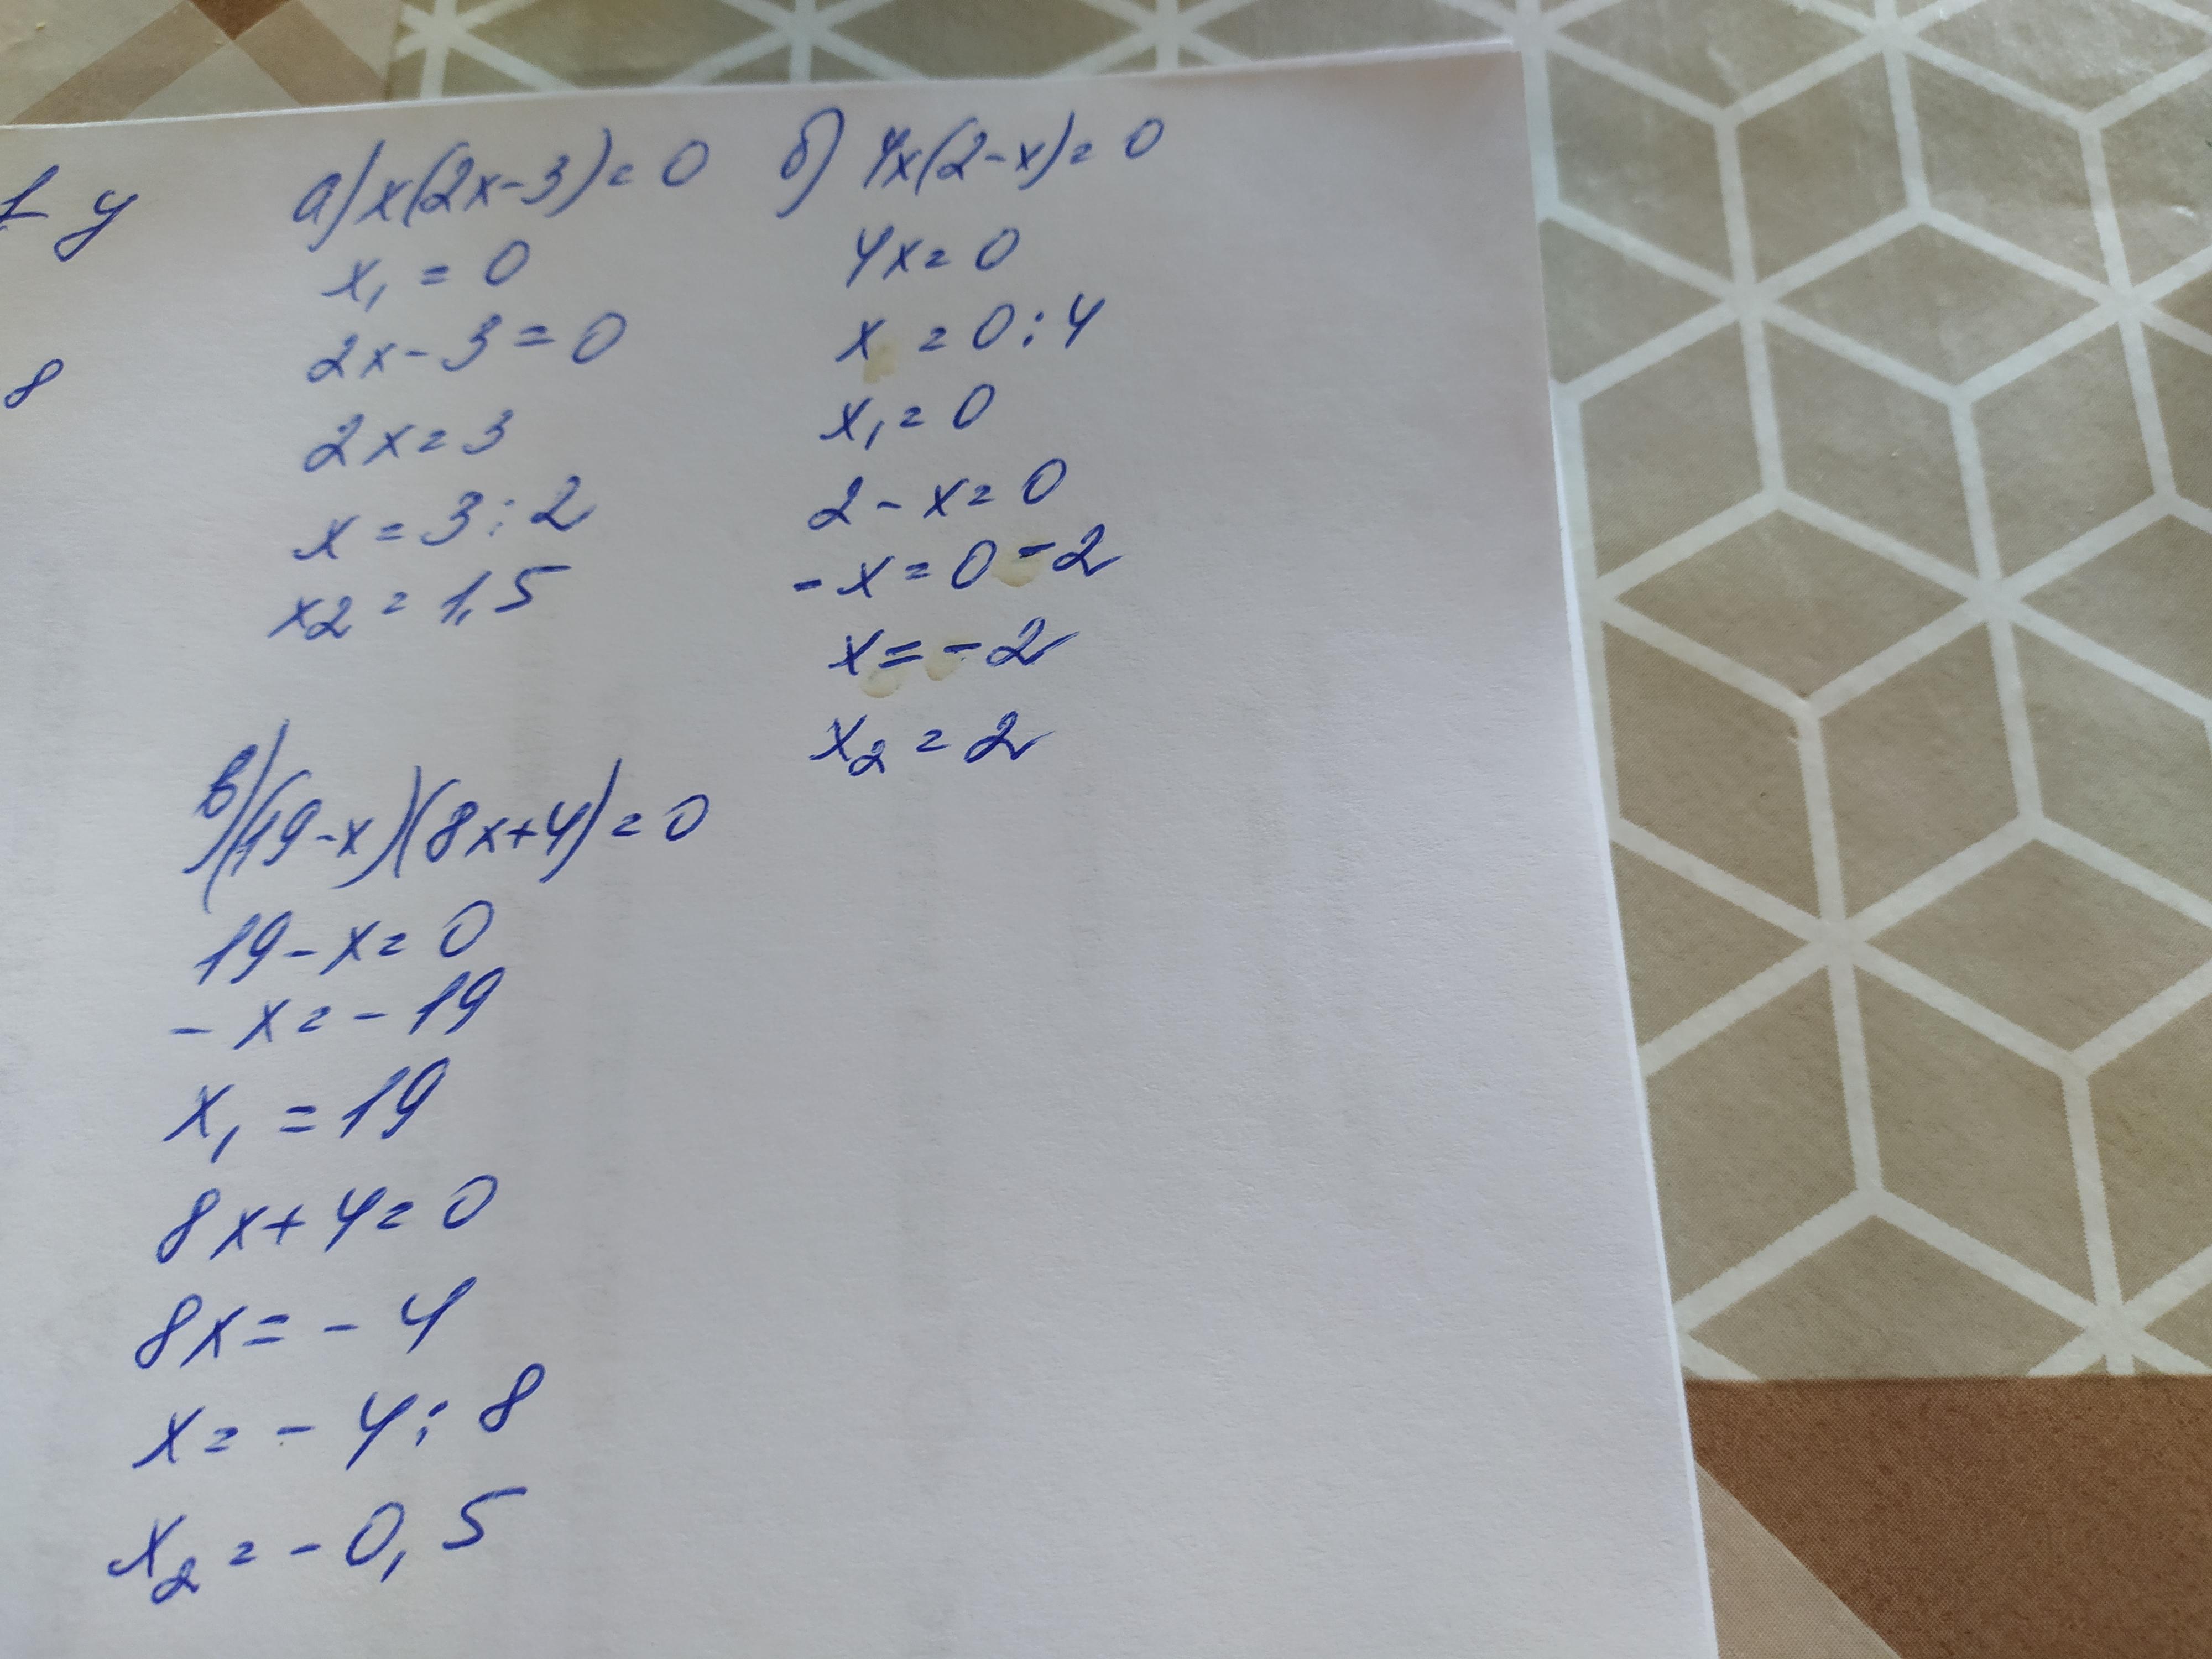 1 y
8
а) x(2x-3)=0
x₁ = 0
2x-3=0
2x=3
x=3:2
x2=1,5
б) 4x(2-x)=0
4x=0
x=0:4
x₁=0
2-x=0
-x=0-2
x=-2
x₂=2
в) (19-x)(8x+4)=0
19-x=0
-x=-19
x₁=19
8x+4=0
8x=-4
x=-4:8
x₂=-0,5